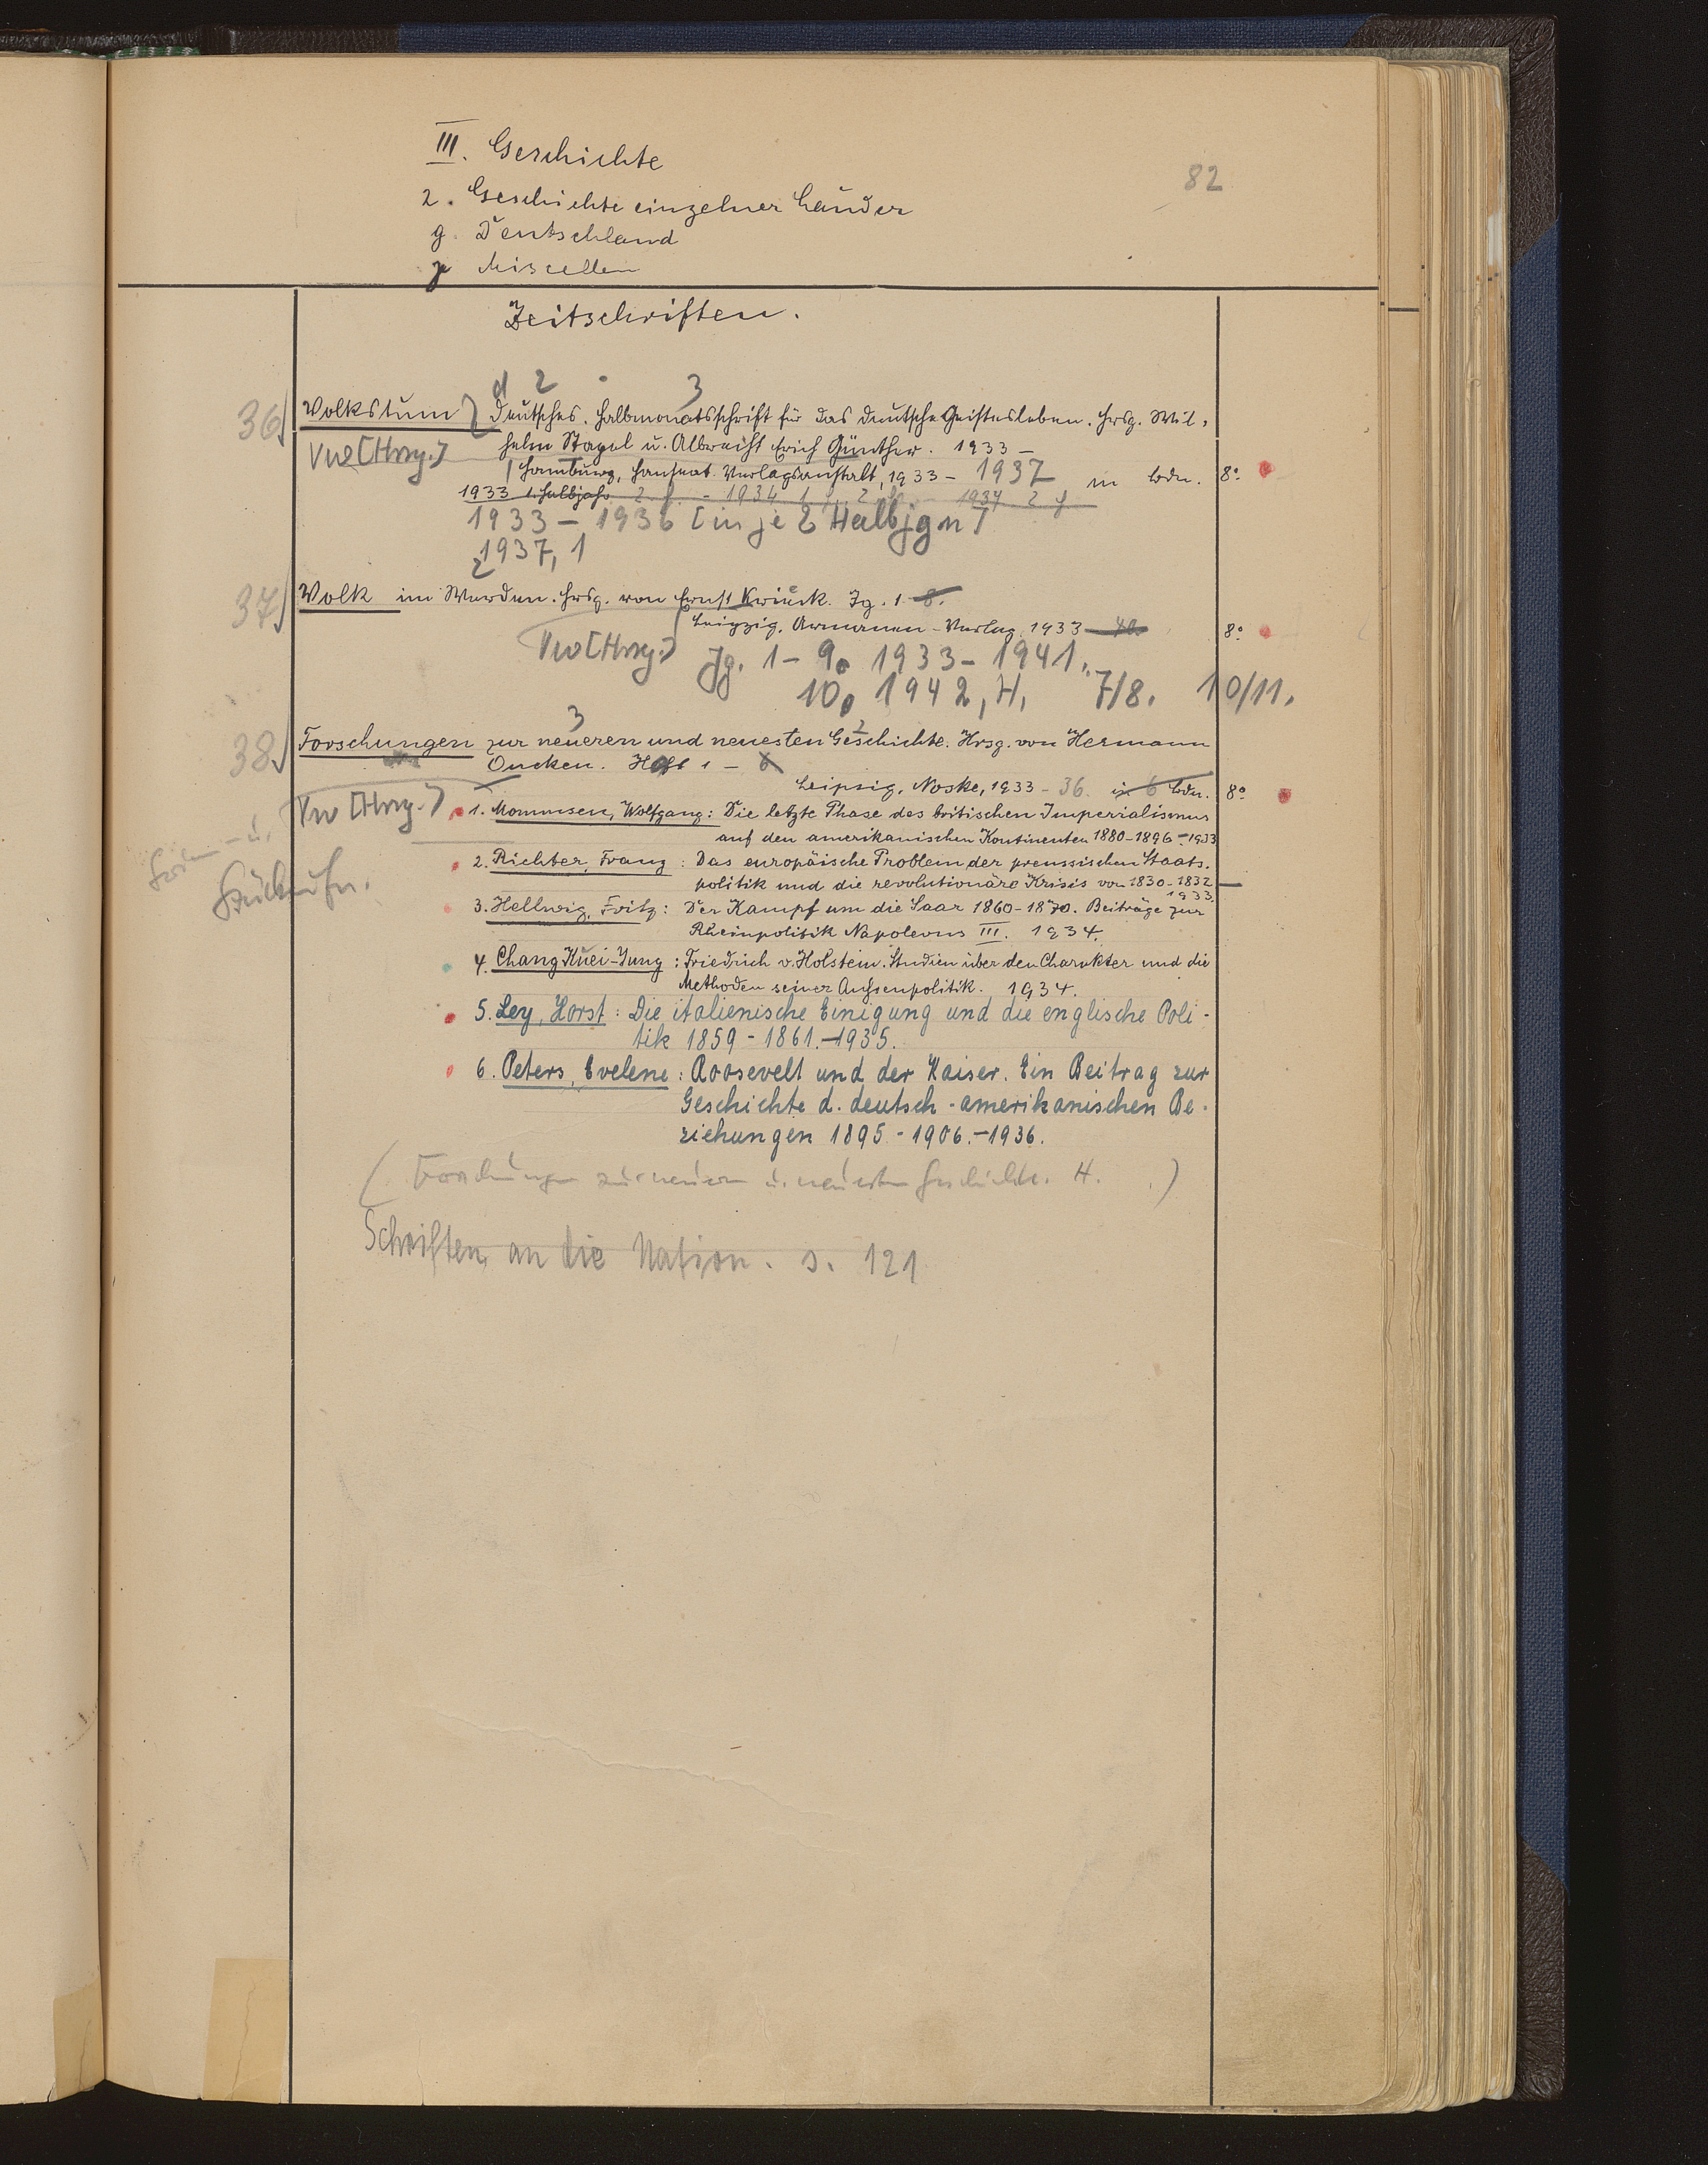 III. Geschichte
82
2. Geschichte einzelner Länder
g. Deutschland
γ Miscellen
Zeitschriften.
2 3
36 Volkstum Deutsches. Halbmonatsschrift für das deutsche Geistesleben. Hrsg. Wil-
helm Stapel u. Albrecht Erich Günther. 1933 –
Vw [Hrsg.]
Hamburg, Hanseat. Verlagsanstalt, 1933 – 1937 in Bdn. 8°
1933 1. Halbjahr 2. – 1934 1 2 1937 2
1933 – 1936 [in je 2 Halbjgn]
1937, 1
37 Volk im Werden. Hrsg. von Ernst Krieck. Jg. 1 – 8.
Leipzig, Armanen-Verlag, 1933 – 40 8°
Vw [Hrsg.] Jg. 1 – 9. 1933 – 1941.
10. 1942, H. 7/8. 10/11.
3 2
38 Forschungen zur neueren und neuesten Geschichte. Hrsg. von Hermann
Oncken. Heft 1 – 6
Leipzig, Noske, 1933 – 36. in 6 Bdn. 8°
Vw [Hrsg.]
1. Mommsen, Wolfgang: Die letzte Phase des britischen Imperialismus
auf den amerikanischen Kontinenten 1880–1896.–1933
u.
2. Richter, Franz: Das europäische Problem der preussischen Staats-
politik und die revolutionäre Krisis von 1830–1832
1933.
3. Hellwig, Fritz: Der Kampf um die Saar 1860–1870. Beiträge zur
Rheinpolitik Napoleons III. 1934.
4. Chang Kuei-Yung: Friedrich v. Holstein. Studien über den Charakter und die
Methoden seiner Aussenpolitik. 1934.
5. Ley, Horst: Die italienische Einigung und die englische Poli-
tik 1859 – 1861.–1935.
6. Peters, Evelene: Roosevelt und der Kaiser. Ein Beitrag zur
Geschichte d. deutsch-amerikanischen Be-
ziehungen 1895 – 1906.–1936.
(Forschungen zur neueren u. neuesten Geschichte. H. .)
Schriften an die Nation. s. 121